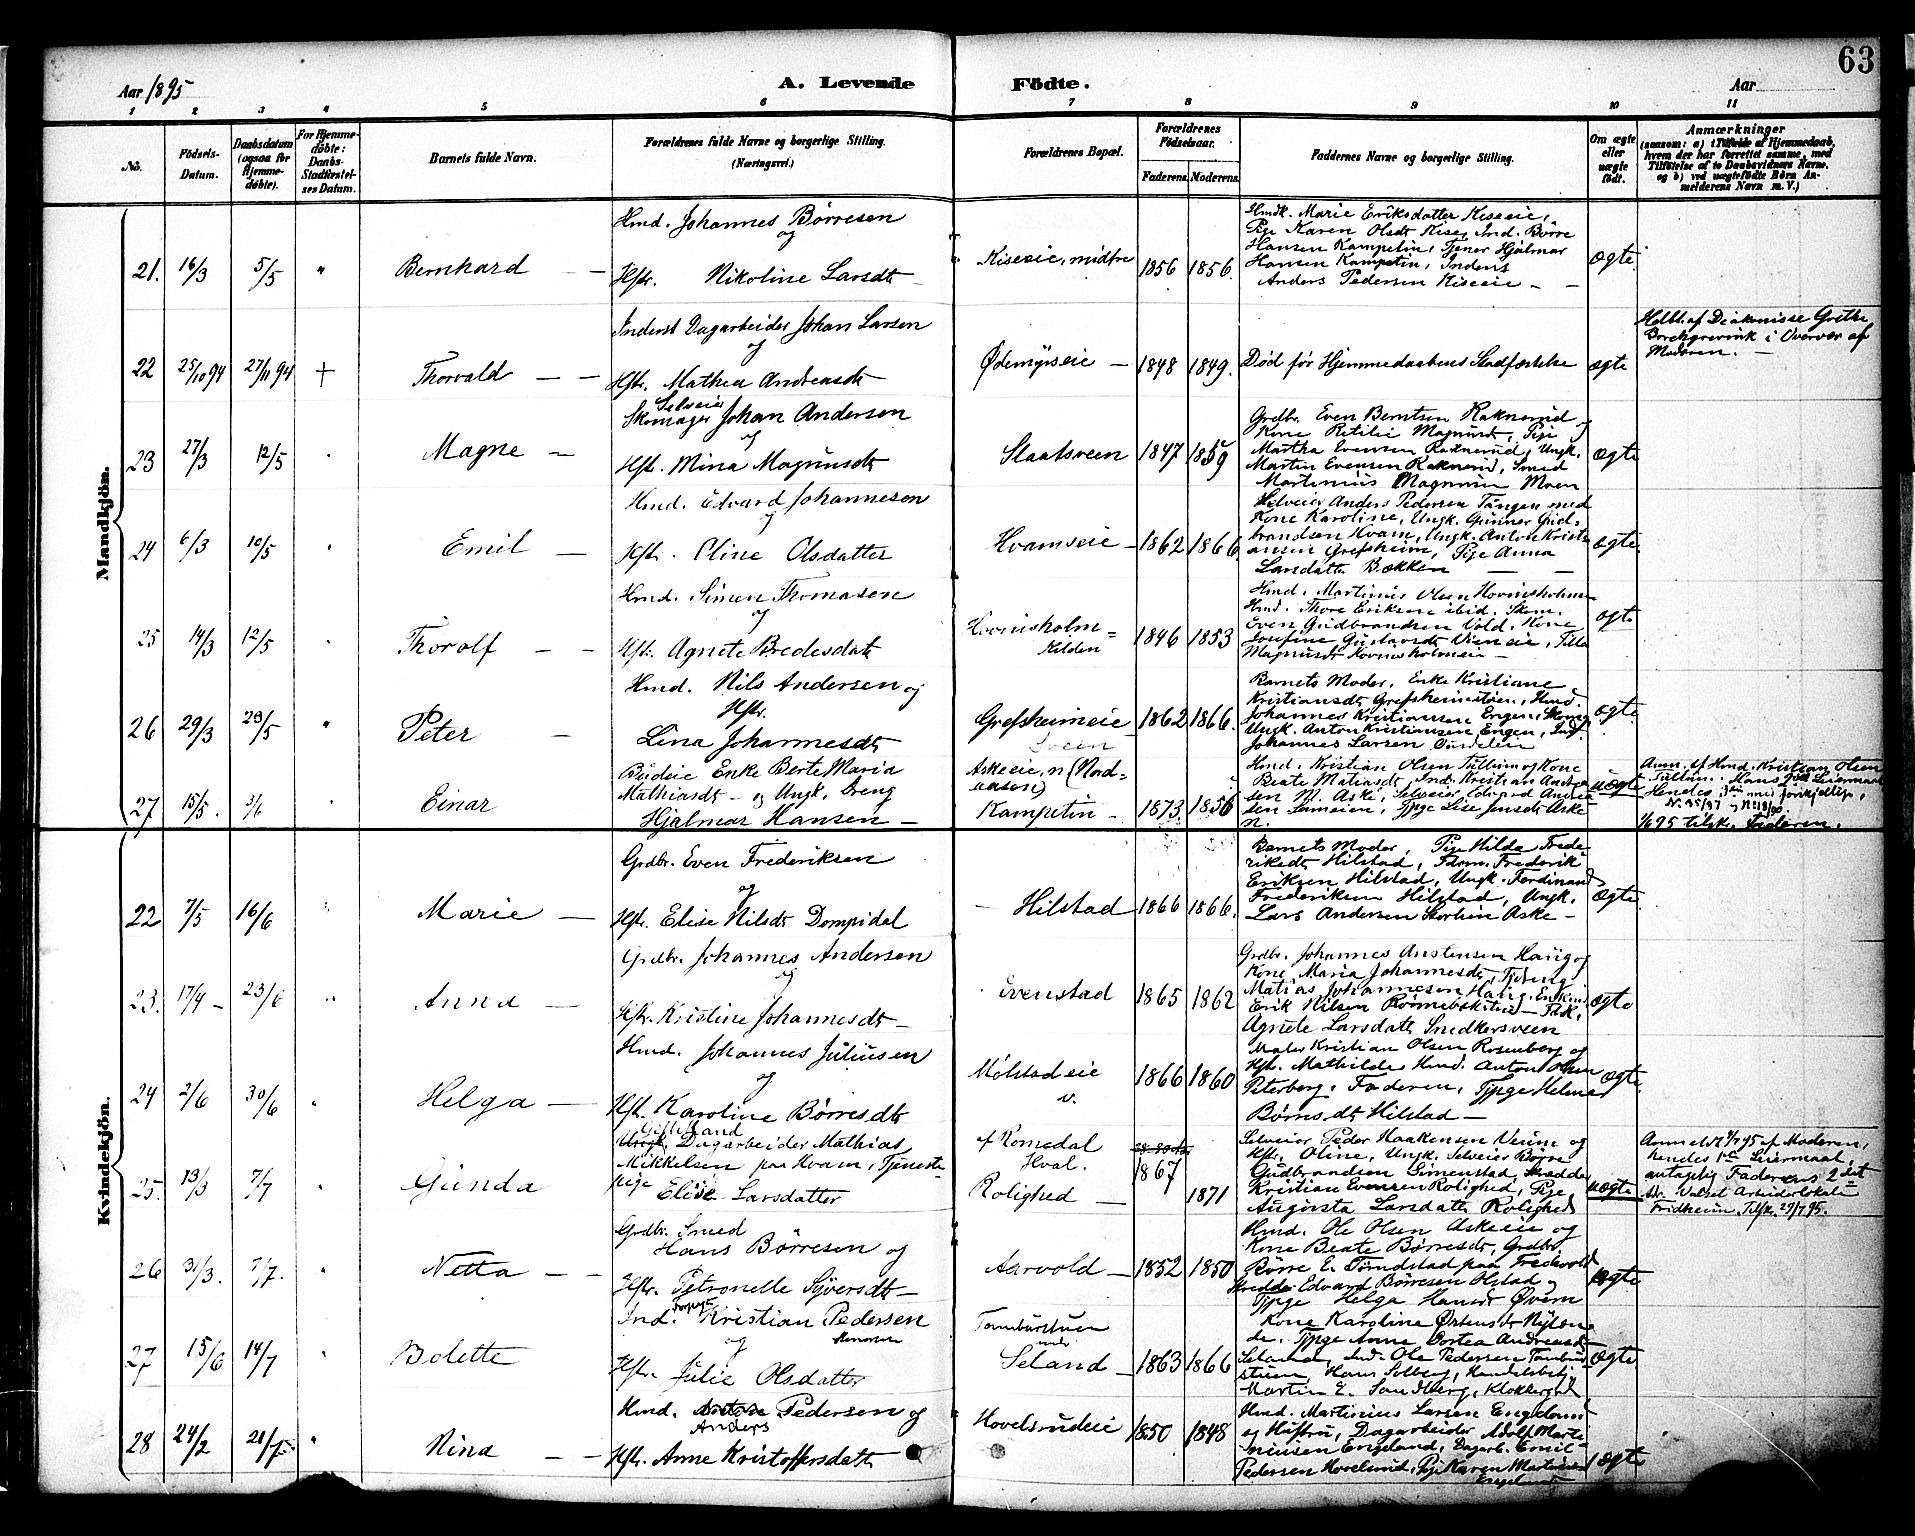 63
Aar 1895
A. Levende Födte.
Aar
1 2 3 4 5 6 7 8 9 10 11
No.
Födsels-
Datum.
Daabsdatum
(ogsaa for
Hjemme-
døbte).
For Hjemme-
döbte:
Daabs-
Stadfæstel-
ses Datum.
Barnets fulde Navn.
Forældrenes fulde Navne og borgerlige Stilling.
(Næringsvei.)
Forældrenes Bopæl.
Forældrenes
Födselsaar.
Faderens. Moderens.
Faddernes Navne og borgerlige Stilling.
Om ægte
eller
uægte
født.
Anmærkninger
(saasom: a) i Tilfælde af Hjemmedaab,
hvem der har forrettet samme, med
Tilföielse af to Daabsvidners Navne,
og b) ved uægtefödte Börn An-
melderens Navn m. V.)
Mandkjön.
21. 16/3 5/5 " Bernhard
Hmd. Johannes Börresen
og
Hstr. Nikoline Larsdtr
Kiseeie, midtre 1856 1856.
Hmdk. Marie Eriksdatter Kiseeie,
Pige Karen Olsdtr Kise, Ind. Börre
Hansen Kampetin, Tjener Hjalmar
Hansen Kampetin, Inderst
Anders Pedersen Kiseeie
ægte
22 25/10 94 27/11 94 + Thorvald
Inderst Dagarbeider Johan Larsen
og
Hstr. Mathea Andreasdtr
Ødemyrseie 1848 1849.
Död før Hjemmedaabens Stadfæstelse
ægte
Hdbt. af Diakonisse Grethe
Borchgrevink i Overvær af
Moderen.
23 27/3 12/5 Magne
Selveier
Skomager Johan Andersen
og
Hstr. Mina Magnusdtr
Staatsveen 1847 1859
Grdbr. Even Berntsen Raknerud og
Kone Magnusdtr, Pige
Martha Evensen Raknerud, Ungk.
Martin Evensen Raknerud, Smed
Martinius Magnusen Moen
ægte
24 6/3 10/5 Emil
Hmd. Edvard Johannesen
og
Hstr. Oline Olsdatter
Hvamseie 1862 1866
Selveier Anders Pedersen Tangen med
Kone Karoline, Ungk. Gunner Gud-
brandsen Hvam, Ungk. Anton Kristi-
ansen Grefsheim, Pige Anna
Larsdatter Bækken
ægte
25 14/3 12/5 Thorolf
Hmd. Simen Thomasen
og
Hstr. Agnete Bredesdatr
Hovinsholm=
Kilden 1846 1853
Hmd. Martinius Olsen Hovinsholmen
Hmd. Thore Eriksen ibid. Skom.
Even Gudbrandsen Vold, Kone
Josefine Gustavsdtr Vieneie, Tilla
Magnusdtr Hovinsholmeie
ægte
26 29/3 23/5 " Peter
Hmd. Nils Andersen og
Hstr.
Lina Johannesdtr
Grefsheimeie
Sveen 1862 1866.
Barnets Moder, Enke Kristiane
Kristiansdtr Grefsheimstuen, Hmd.
Johannes Kristiansen Engen, Skomg.
Ungk. Anton Kristiansen Engen, Ind.
Johannes Larsen
ægte
27 15/5. 3/6 Einar
Budeie Enke Berte Maria
Mathiasdtr og Ungk. Dreng
Hjalmar Hansen
Askeeie, n (Nord=
aasen)
Kampetin 1873 1856
Hmd. Kristian Olsen Tutbim og Kone
Beate Matiasdtr, Ind. Kristian Andrea-
sen N. Aske, Selveier Edvard Andrea-
sen , Tjpge Lise Jensdtr Aske
n.
uægte
Anm. af Hmd. Kristian Olsen
. Hans 1ste Leiermaal
Hendes 1ste med forskjellige,
N. 95/97 og N. 18/00.
1/6 95 tilsk. Faderen.
Kvindekjön.
22 7/5 16/6 " Marie
Grdbr. Even Frederiksen
og
Hstr. Elise Nilsdtr Dompidal
Hilstad 1866 1866.
Barnets Moder, Pige Hilda Frede-
rikdtr Hilstad, Form. Frederik
Eriksen Hilstad, Ungk. Ferdinand
Frederiksen Hilstad, Ungk.
Lars Andersen Storhin Aske
ægte.
23. 17/4 23/6 " Anna
Grdbr. Johannes Andersen
og
Hstr. Kristine Johannesdtr
Evenstad 1865 1862
Grdbr. Johannes Austensen Haug og
Kone Maria Johannesdtr, Tjdreng
Matias Johannesen Haug, Enkem.
Erik Nilsen , Pige
Agnete Larsdatr Snedkersveen
ægte
24 2/6 30/6 Helga
Hmd. Johannes Juliusen
og
Hstr. Karoline Börresdtr
Mölstadeie
v. 1866 1860
Maler Kristian Olsen Rosenberg og
Hstr. Mathilde, Hmd. Anton Olsen
Peterborg, Faderen, Tjpge Helene
Börresdtr Hilstad
ægte.
25. 13/3 7/7 " Gunda
Gift Mand
Ungk. Dagarbeider Mathias
Mikkelsen paa Hvam, Tjeneste
pige Elise Larsdatter
f Romedal
Hval.
Rolighed 1867 1871
Selveier Peder Haakensen Veum og
Hstr. Oline, Ungk. Selveier Börre
Gudbrandsen Simenstad, Skrædder
Kristian Evensen Rolighed, Pige
Augusta Larsdatr Rolighed
uægte
Anmeldt 4/7 95 af Moderen,
hendes 1ste Leiermaal,
antagelig Faderens 2det
Adr. Valset Arbeiderlokale
Fridheim, Tilsk. 29/7 95.
26 31/3. 7/7. " Netta
Grdbr. Smed
Hans Börresen og
Hstr. Petronelle Syversdtr
Aarvold 1852 1850
Hmd. Ole Olsen Askeeie og
Kone Beate Börresdtr, Grdbr.
Börre E. Törudstad paa Fredsvold
Skrædder Edvard Börresen Olstad og
Tjpge Helga Hansdtr Övern
ægte
27 15/6 14/7 Bolette
Ind. Forpagt. Kristian Pedersen
og
Hstr. Julie Olsdatter
Tamburstuen
under
Seland 1863 1866
Kone Karoline Östensdtr
de, Tjpge Anne Dortea Andreasdtr
Seland, Ind. Ole Pedersen Tambur-
stuen, Hans Solberg, Handelsbetj.
Martin E. Sandberg, Klokkergrd.
ægte
28 24/2 21/7 " Nina
Hmd. Pedersen og
Anders
Hstr. Anne Kristoffersdatr
Hovelsrudeie 1850 1848
Hmd. Martinius Larsen Engelund
og Hustru, Dagarbeider Adolf Marti-
niusen Engelund, Dagarb. Emil
Pedersen Hovelsrud, Pige Karen Martinsd
Engelund
ægte